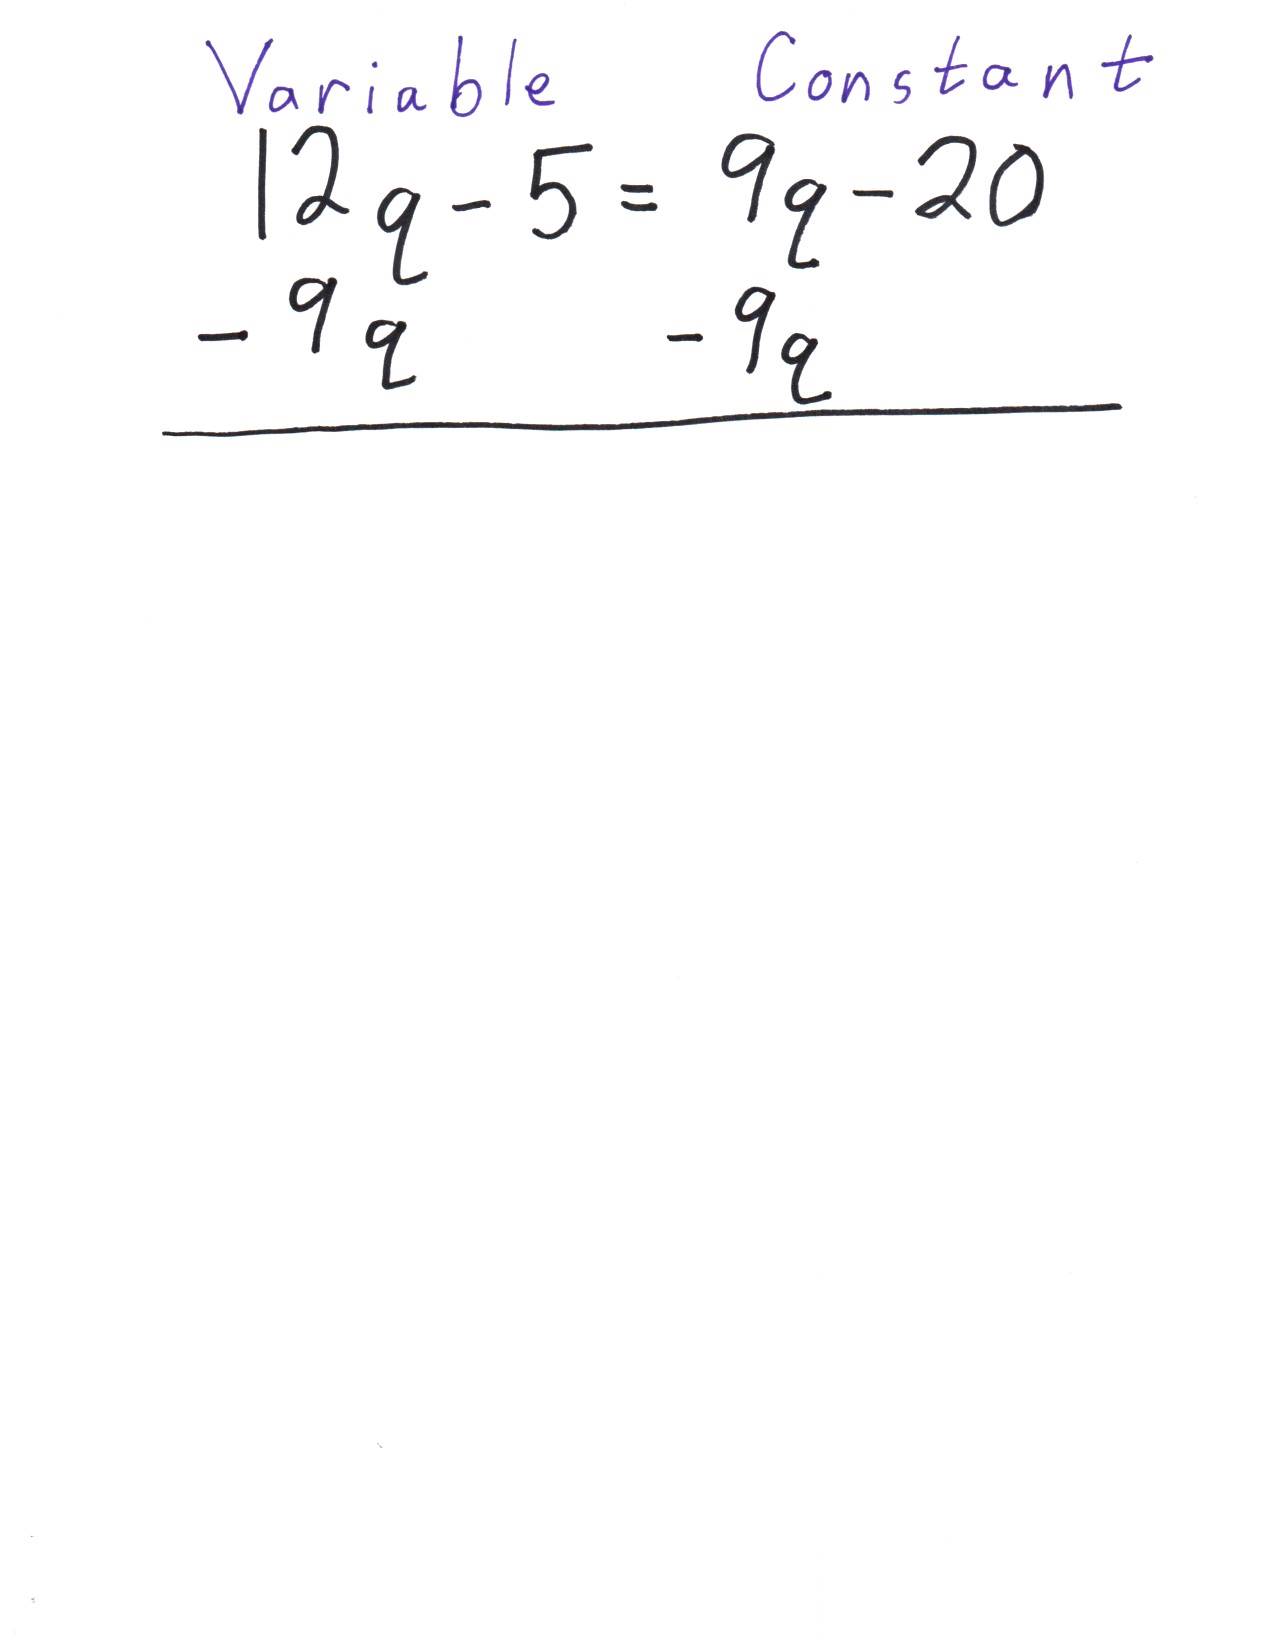 Variable Constant
12q - 5 = 9q - 20
- 9q - 9q